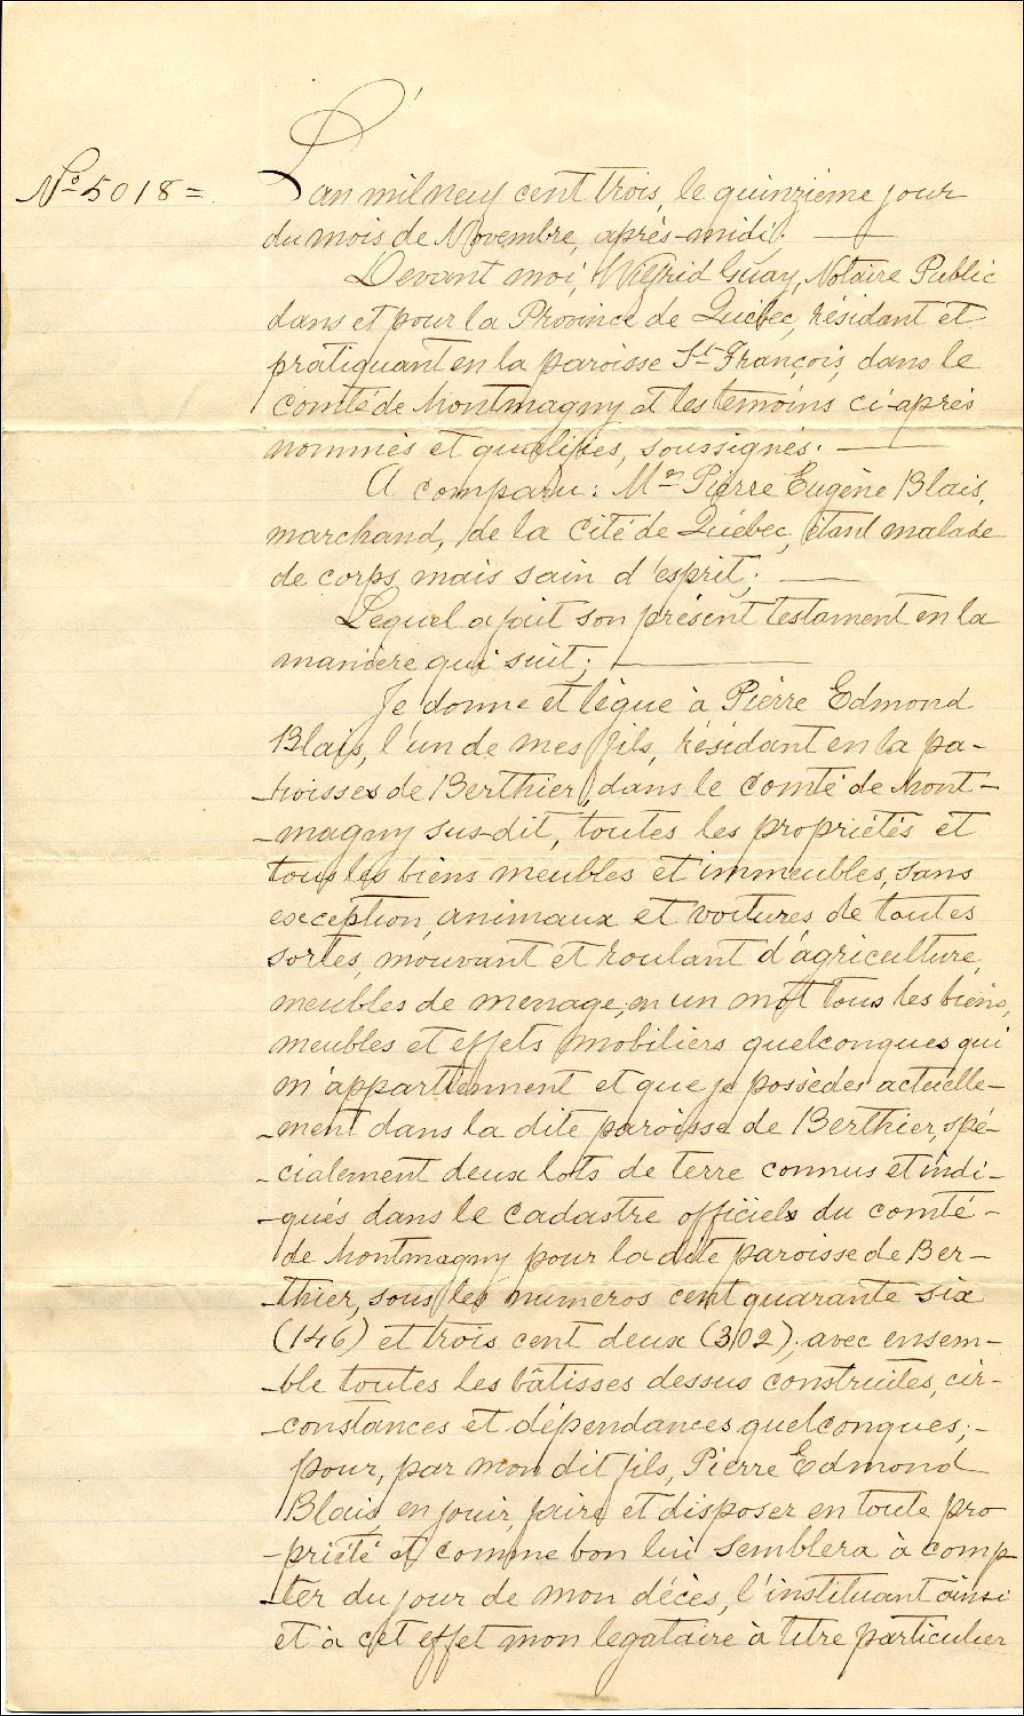 No 5018 =
L'an mil neuf cent trois, le quinzième jour
du mois de Novembre, après-midi. —
Devant moi, Wilfrid Guay, Notaire Public
dans et pour la Province de Québec, résidant et
pratiquant en la paroisse St François, dans le
comté de Montmagny et les temoins ci-après
nommés et qualifiés, soussignés. —
A comparu : Mr Pierre Eugène Blais,
marchand, de la Cité de Québec, étant malade
de corps mais sain d'esprit; —
Lequel a fait son présent testament en la
manière qui suit; —
Je donne et lègue à Pierre Edmond
Blais, l'un de mes fils, résidant en la pa-
-roisses de Berthier, dans le Comté de Mont-
-magny sus-dit, toutes les propriétés et
tous les biens meubles et immeubles, sans
exception, animaux et voitures de toutes
sortes, mouvant et roulant d'agriculture,
meubles de menage, en un mot tous les biens,
meubles et effets mobiliers quelconques qui
m'appartiennent et que je possèdes actuelle-
-ment dans la dite paroisse de Berthier, spé-
-cialement deux lots de terre connus et indi-
-qués dans le cadastre officiels du comté -
de Montmagny pour la dite paroisse de Ber-
-thier, sous les numeros cent quarante six
(146) et trois cent deux (302); avec ensem-
-ble toutes les bâtisses dessus construites, cir-
-constances et dépendances quelconques; -
pour, par mon dit fils, Pierre Edmond
Blais, en jouir, faire et disposer en toute pro
-priété et comme bon lui semblera à comp-
-ter du jour de mon décès, l'instituant ainsi
et à cet effet mon legataire à titre particulier